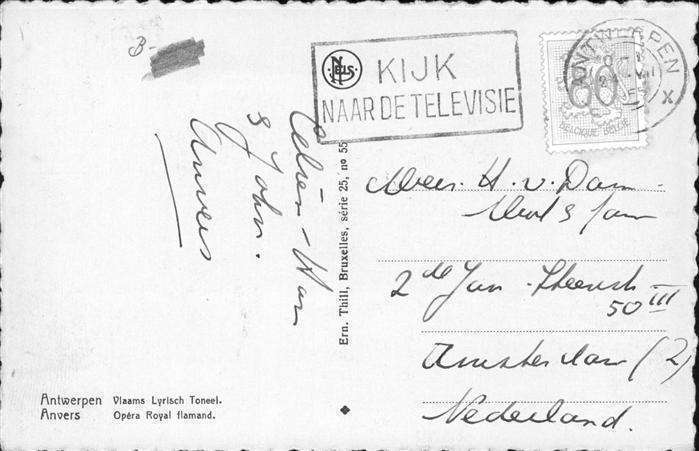 B-
NELS
KIJK
NAAR DE TELEVISIE
ANTWERPEN
X
BELGIQUE-BELGIË
& John.
Anvers
Ern. Thill, Bruxelles, série 25, nº 55
H. v. Dam
& fam
2de Jan Steenstr
50 III
Amsterdam (2)
Nederland.
Antwerpen Vlaams Lyrisch Toneel.
Anvers Opéra Royal flamand.